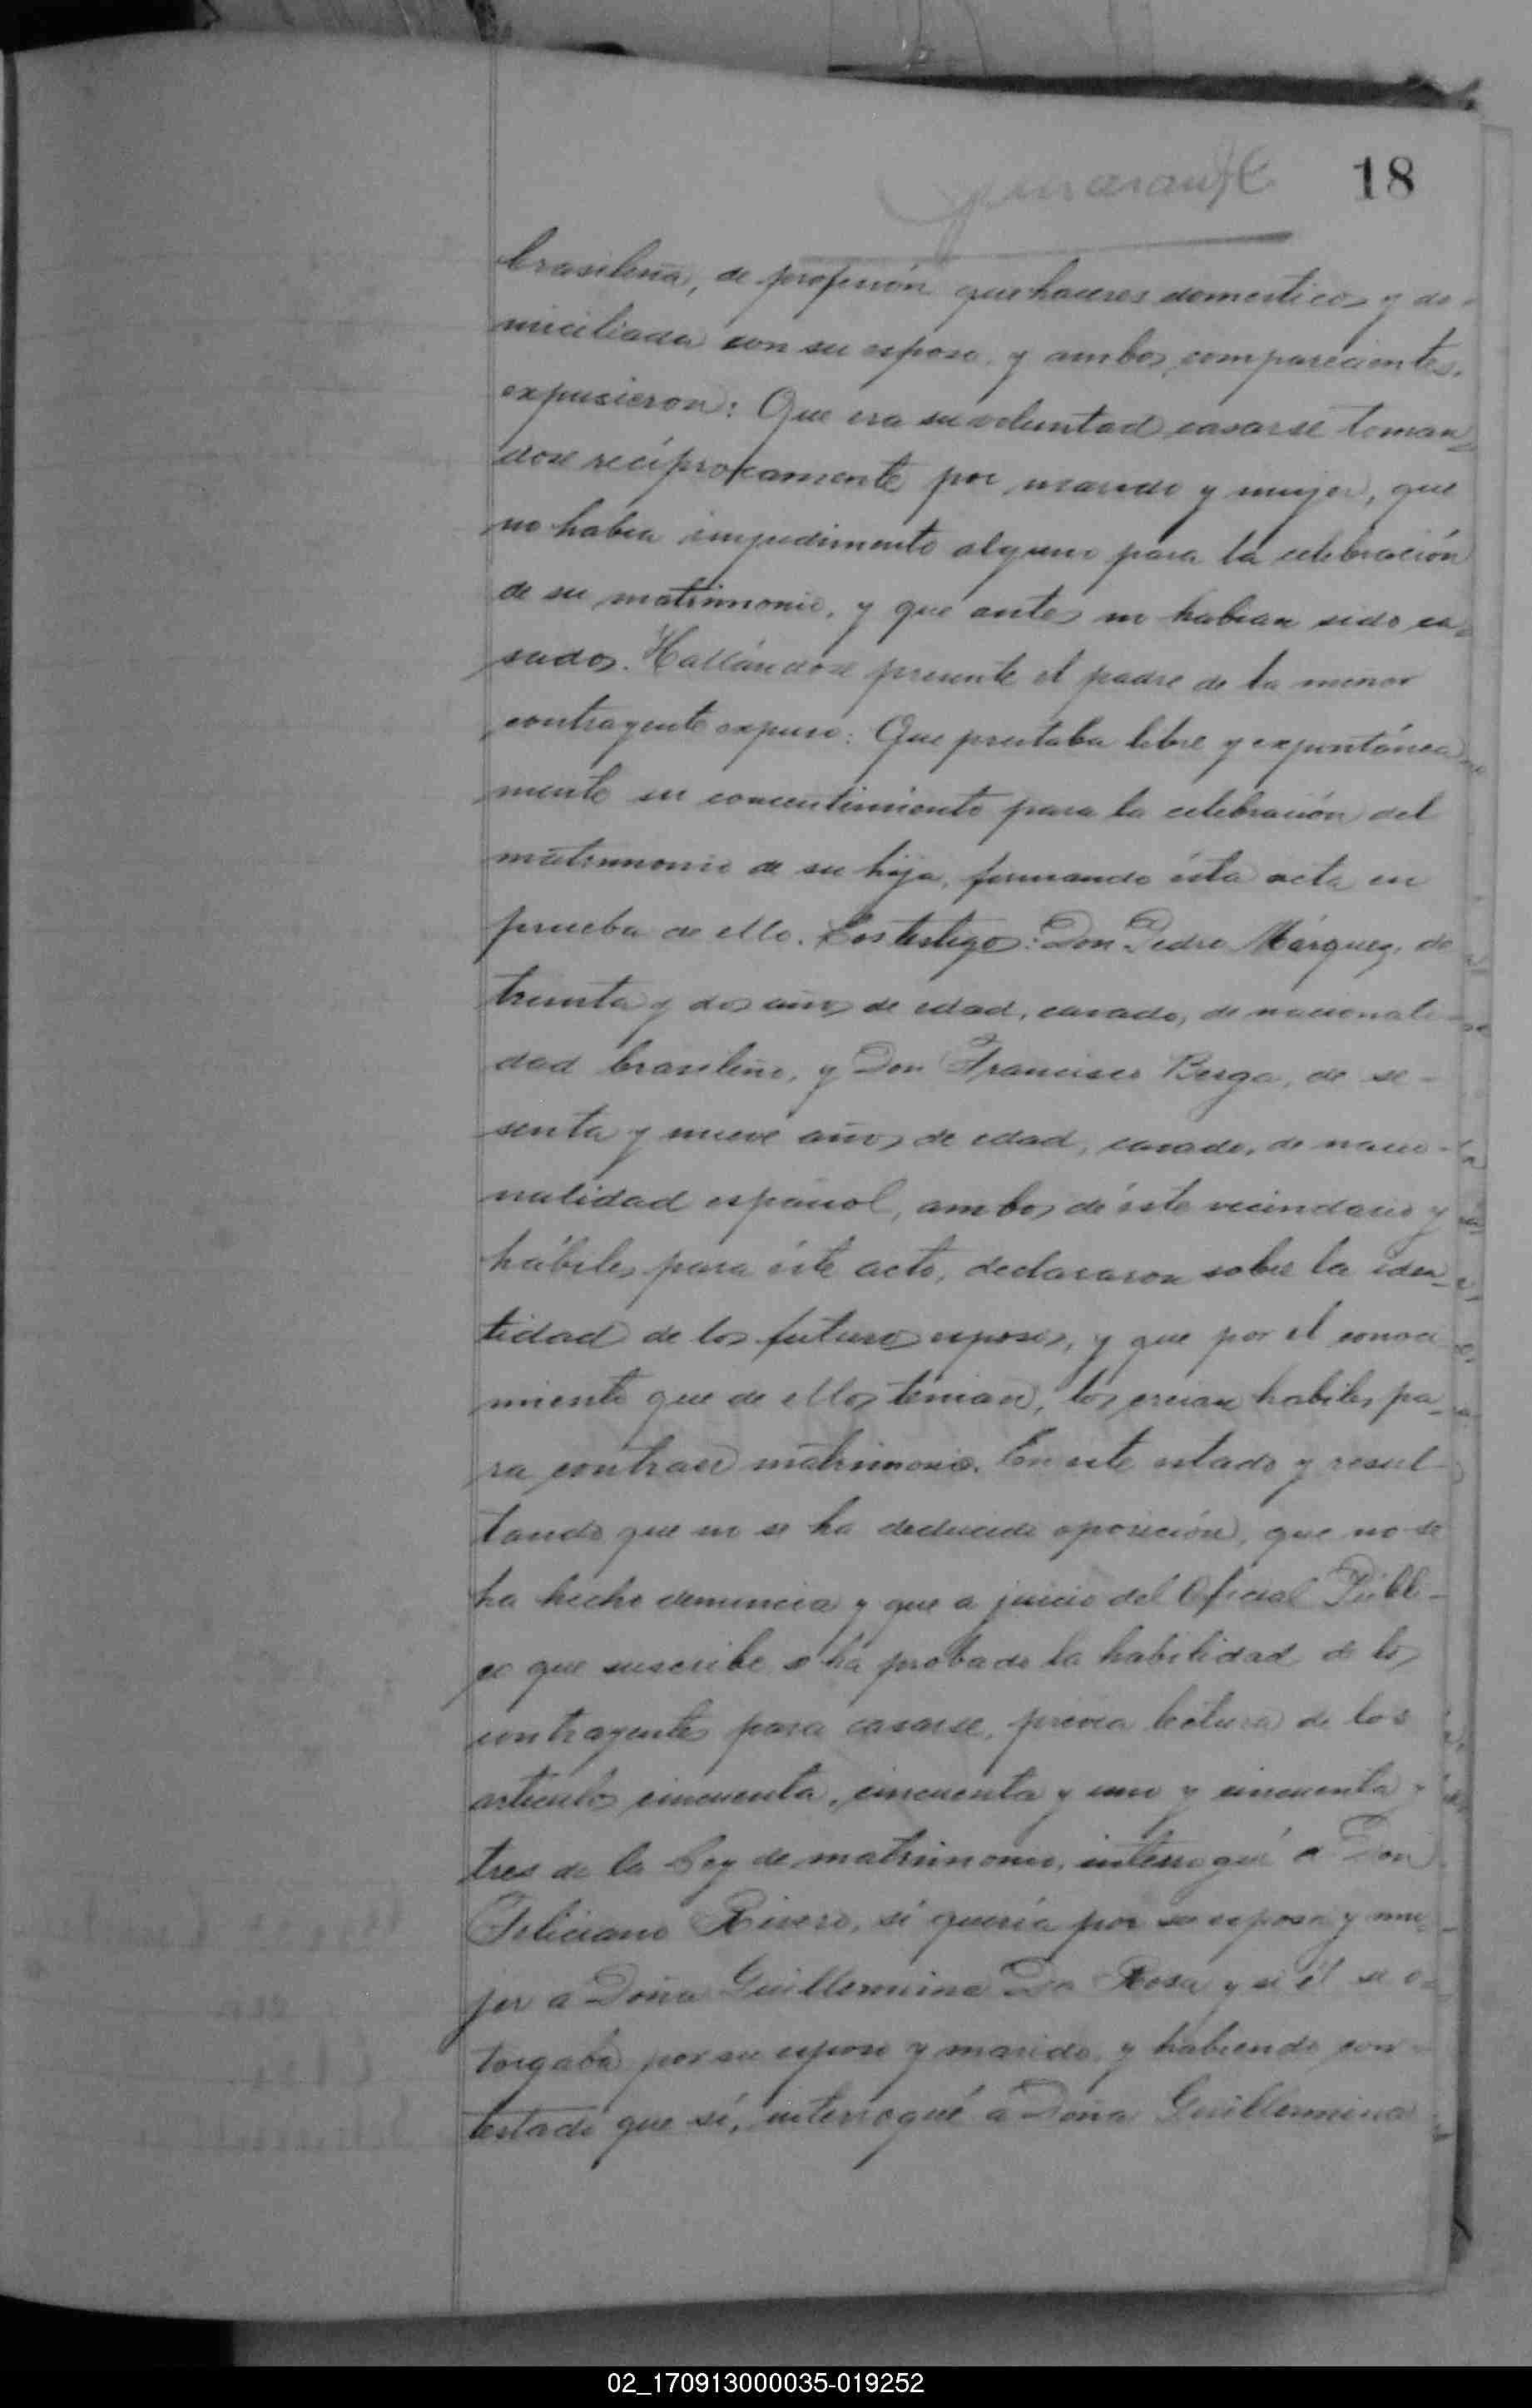 18
brasileña, de profesión quehaceres domesticos y do-
miciliada con su esposo, y ambos comparecientes,
expusieron: Que era su voluntad casarse toman-
dose recíprocamente por marido y mujer, que
no habia impedimento alguno para la celebración
de su matrimonio, y que antes no habian sido ca-
sados. Hallándose presente el padre de la menor
contrayente expuso: Que prestaba libre y expontánea-
mente su concentimiento para la celebración del
matrimonio de su hija, firmando ésta acta en
prueba de ello. Los testigos: Don Pedro Márquez, de
treinta y dos años de edad, casado, de nacionali-
dad brasileño, y Don Francisco Berga, de se-
senta y nueve años de edad, casado, de nacio-
nalidad español, ambos de éste vecindario y
hábiles para éste acto, declararon sobre la iden-
tidad de los futuros esposos, y que por el conoci
miento que de ellos tenian, los creian habiles pa-
ra contraer matrimonio. En este estado y resul-
tando que no se ha deducido oposición, que no se
ha hecho denuncia y que a juicio del Oficial Públi-
co que suscribe se ha probado la habilidad de los
contrayentes para casarse, previa lectura de los
artículos cincuenta, cincuenta y uno y cincuenta y
tres de la Ley de matrimonio, interrogué a Don
Feliciano Rivero, si quería por su esposa y mu-
jer a Doña Guillermina Da Rosa y si él se o-
torgaba por su esposo y marido, y habiendo con-
testado que sí, interrogué a Doña Guillermina
02_170913000035-019252